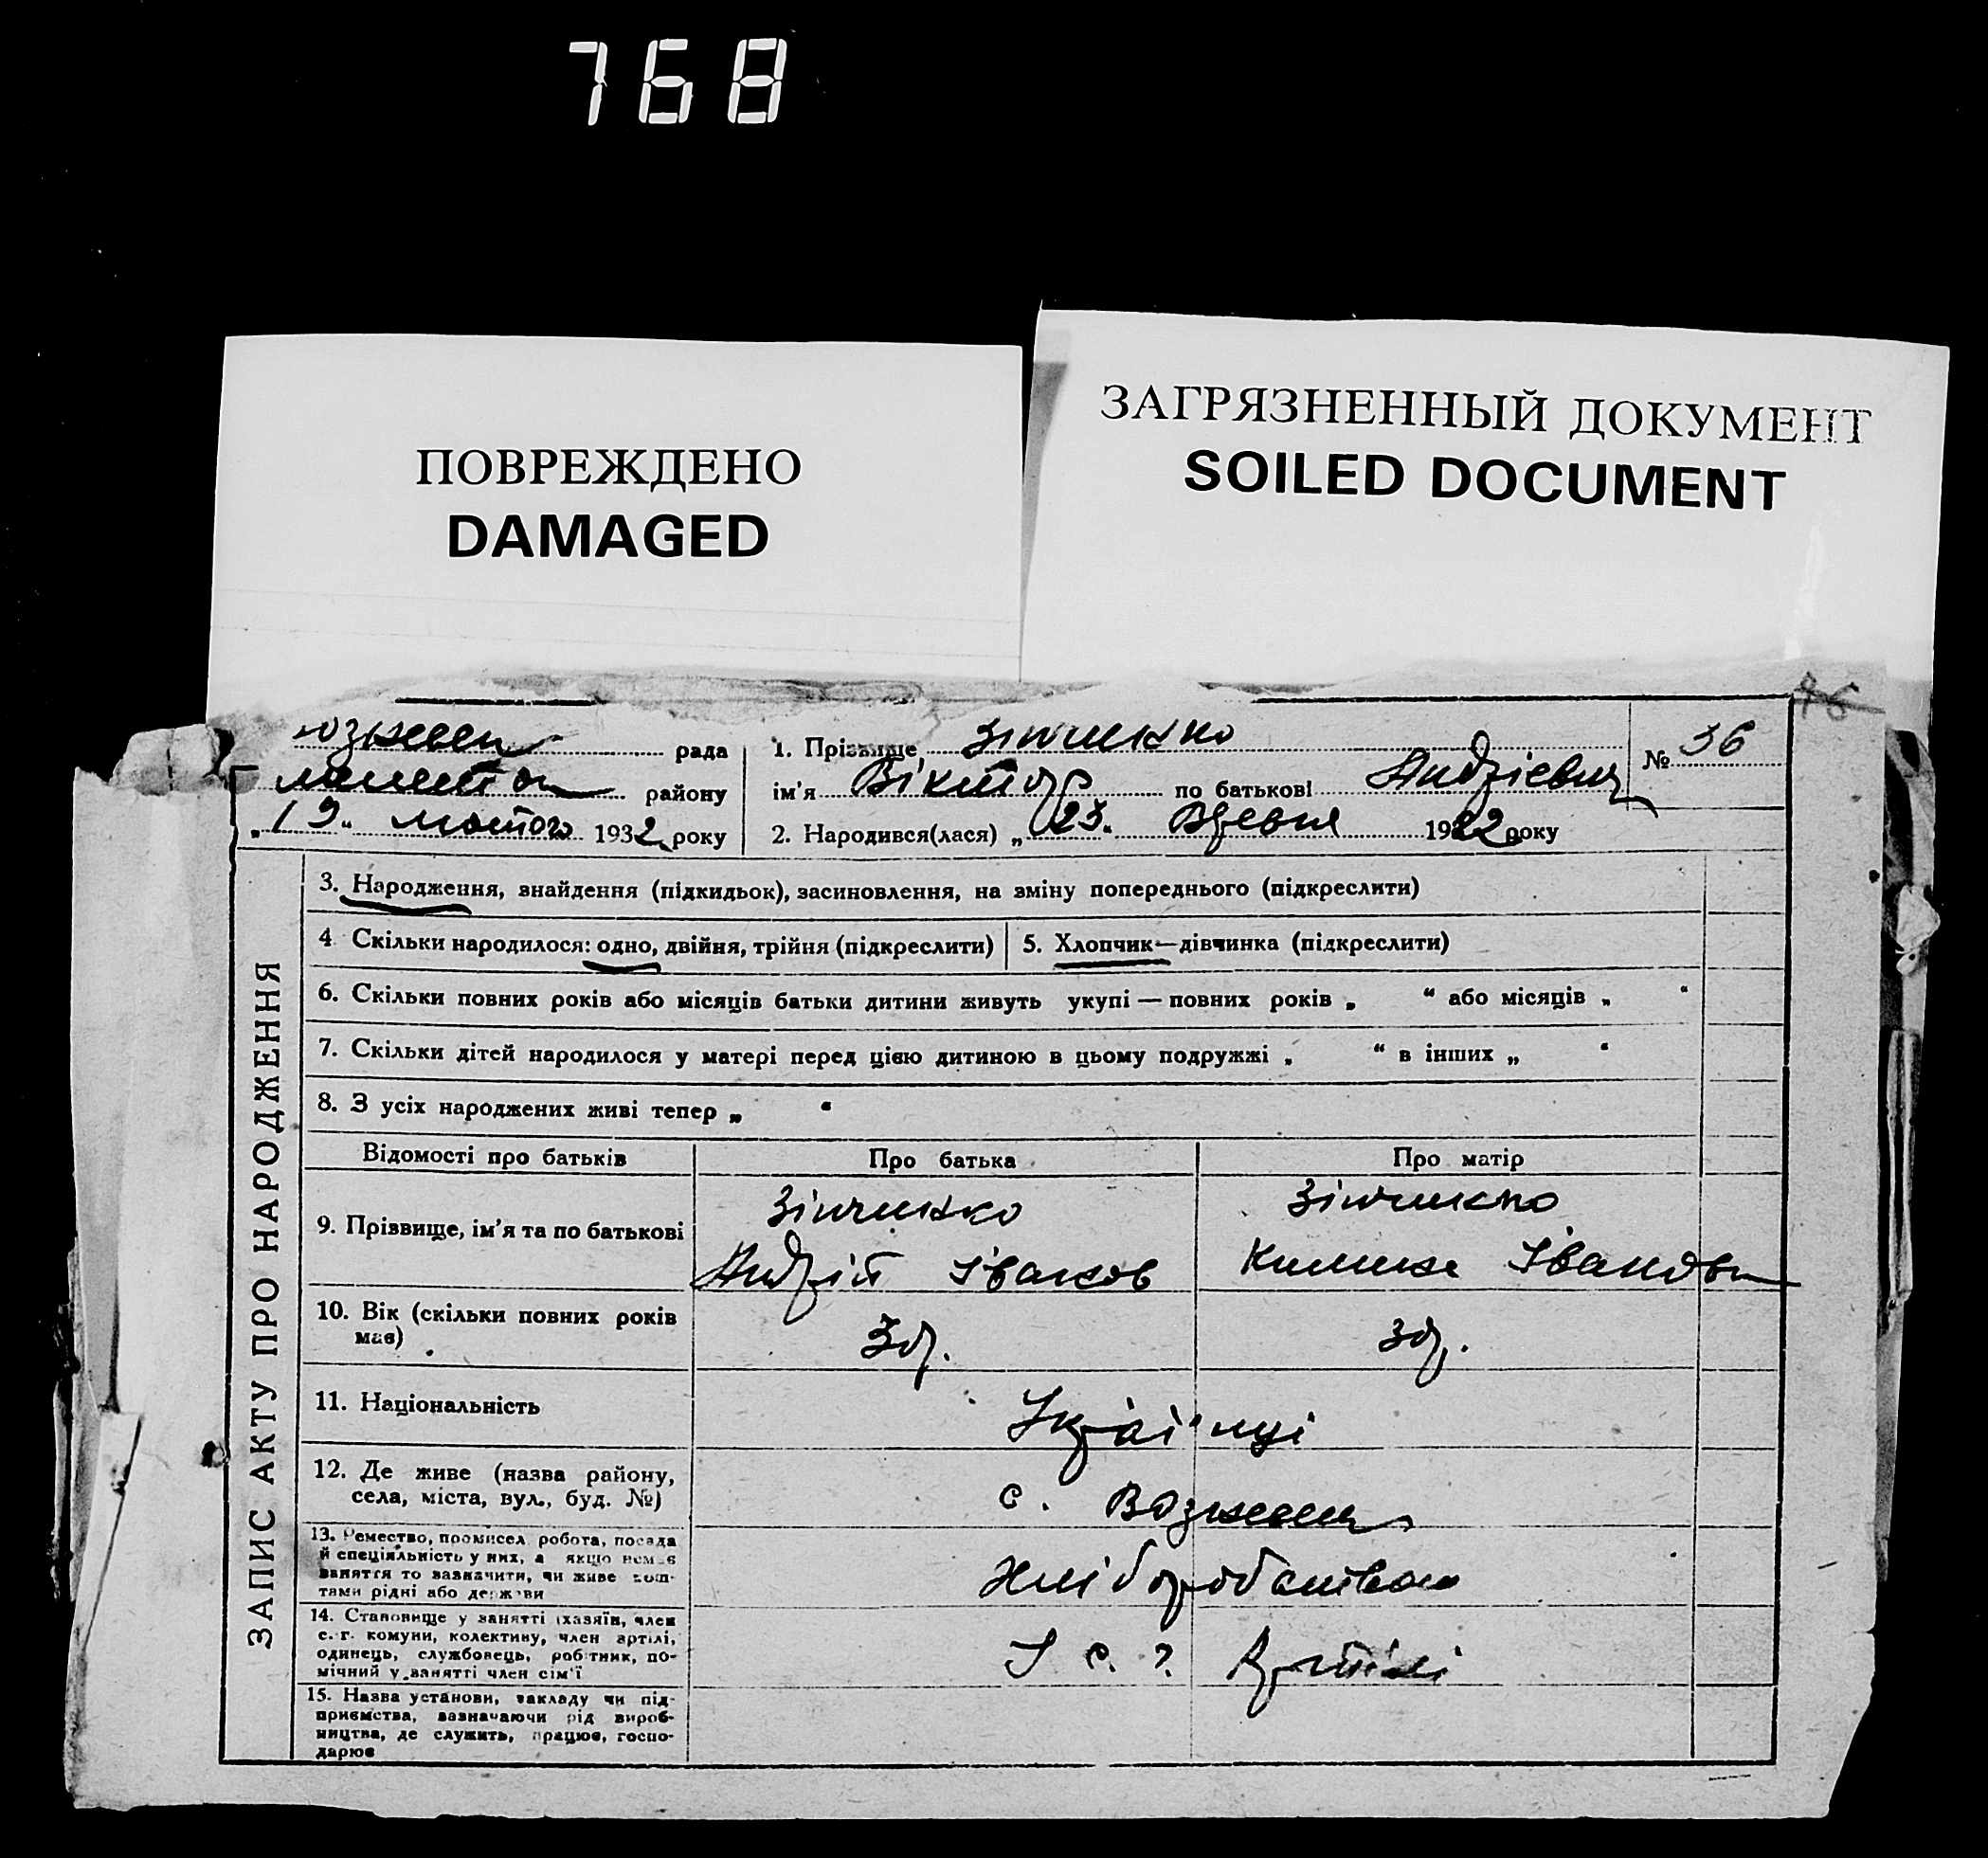 768
ПОВРЕЖДЕНО
DAMAGED
ЗАГРЯЗНЕННЫЙ ДОКУМЕНТ
SOILED DOCUMENT
рада
району
„19“ лютого 1932 року
1. Прізвище Зінченко
ім'я Віктор по батькові Андрієвич
2. Народився(лася) „23. 1922 року
№ 36
ЗАПИС АКТУ ПРО НАРОДЖЕННЯ
3. Народження, знайдення (підкидьок), засиновлення, на зміну попереднього (підкреслити)
4 Скільки народилося: одно, двійня, трійня (підкреслити)
5. Хлопчик—дівчинка (підкреслити)
6. Скільки повних років або місяців батьки дитини живуть укупі — повних років „ “ або місяців „ “
7. Скільки дітей народилося у матері перед цією дитиною в цьому подружжі „ “ в інших „ “
8. З усіх народжених живі тепер „ “
Відомості про батьків
Про батька
Про матір
9. Прізвище, ім'я та по батькові
Зінченко
Андрій Іванов
Зінченко
Іванов
10. Вік (скільки повних років
має)
30р.
30р.
11. Національність
Українці
12. Де живе (назва району,
села, міста, вул., буд. №)
с.
13. Ремество, промисел робота, посада
й спеціяльність у них, а якщо немає
заняття то зазначити, чи живе кош-
тами рідні або держави
Хліборобством
14. Становище у занятті (хазяїн, член
с.-г. комуни, колективу, член артілі,
одинець, службовець, робітник, по-
мічний у занятті член сім'ї
Артілі
15. Назва установи, закладу чи під-
приємства, зазначаючи рід вироб-
ництва, де служить, працює, госпо-
дарює